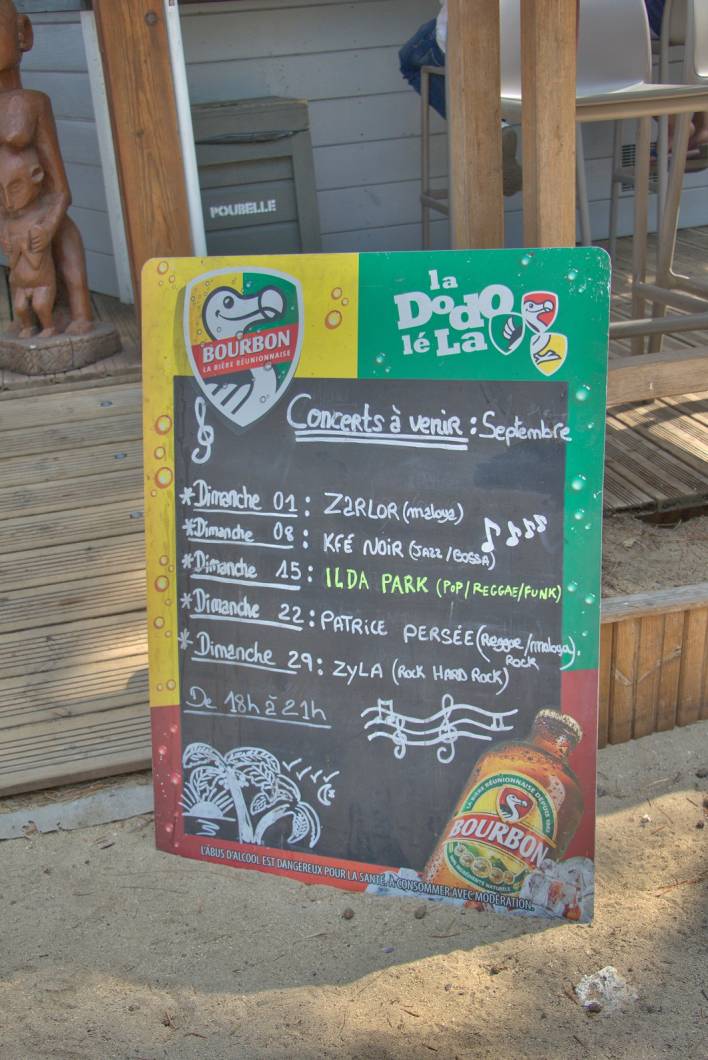 POUBELLE
BOURBON
LA BIÈRE RÉUNIONNAISE
la
DoDo
lé La
Concerts à venir : Septembre
*Dimanche 01 : ZARLOR (maloya)
*Dimanche 08 : KFÉ NOIR (JAZZ/BOSSA)
*Dimanche 15 : ILDA PARK (POP/REGGAE/FUNK)
*Dimanche 22 : PATRICE PERSÉE (Reggae/maloya).
Rock
*Dimanche 29 : ZYLA (ROCK HARD ROCK)
De 18h à 21h
LA BIÈRE RÉUNIONNAISE DEPUIS 1962
BOURBON
L'ABUS D'ALCOOL EST DANGEREUX POUR LA SANTÉ. À CONSOMMER AVEC MODÉRATION.